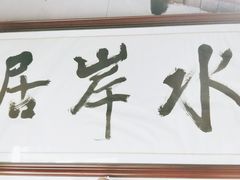 水岸居